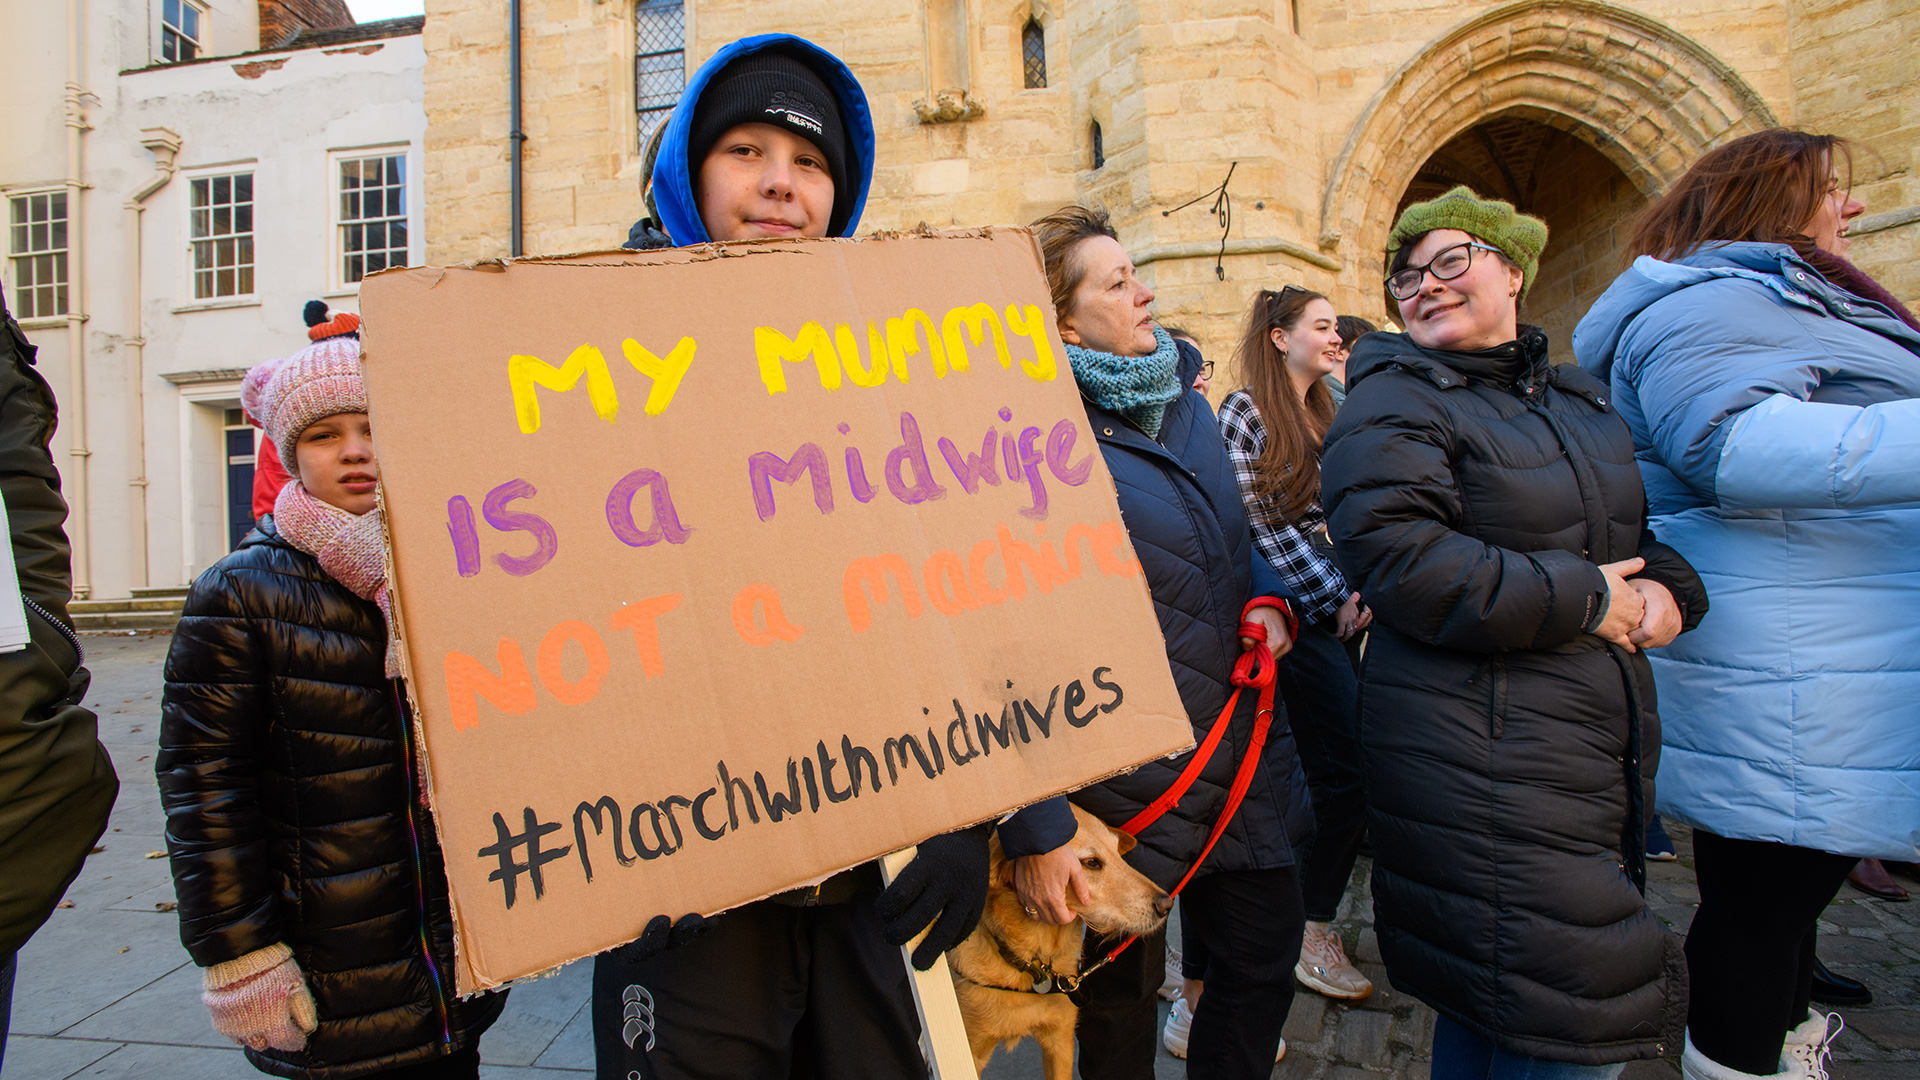 MY MUMMY
IS a Midwife
NOT a Machine
#Marchwithmidwives